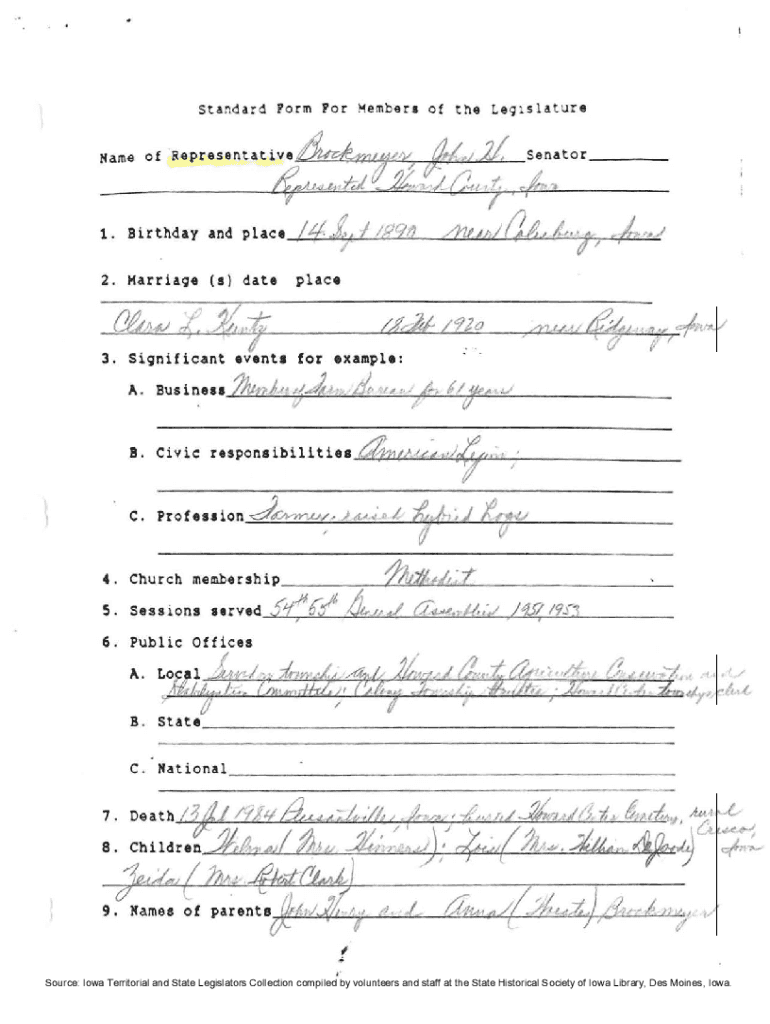 Standard Form For Members of the Legislature
Name of Representative Brockmeyer, John H. Senator
Represented Howard County, Iowa
1. Birthday and place 14 Sept 1890 near Colesburg, Iowa
2. Marriage (s) date place
Clara L. Kuntz 18 Feb 1920 near Ridgeway, Iowa
3. Significant events for example:
A. Business Member of Farm Bureau for 61 years
B. Civic responsibilities American Legion;
C. Profession Farmer, raised hybrid hogs
4. Church membership Methodist
5. Sessions served 54th, 55th General Assemblies 1951, 1953
6. Public Offices
A. Local Served on township and Howard County Agriculture Conservation and
Stabilization Committees; Colony Township trustee; Howard Center township clerk
B. State
C. National
7. Death 13 Jul 1984 Pleasantville, Iowa; buried Howard Center Cemetery, rural
Cresco,
8. Children Welma (Mrs. Hinners); Lois (Mrs. William DeJoode) Iowa
Zeida (Mrs. Robert Clark)
9. Names of parents John Henry and Anna Brockmeyer
Source: Iowa Territorial and State Legislators Collection compiled by volunteers and staff at the State Historical Society of Iowa Library, Des Moines, Iowa.